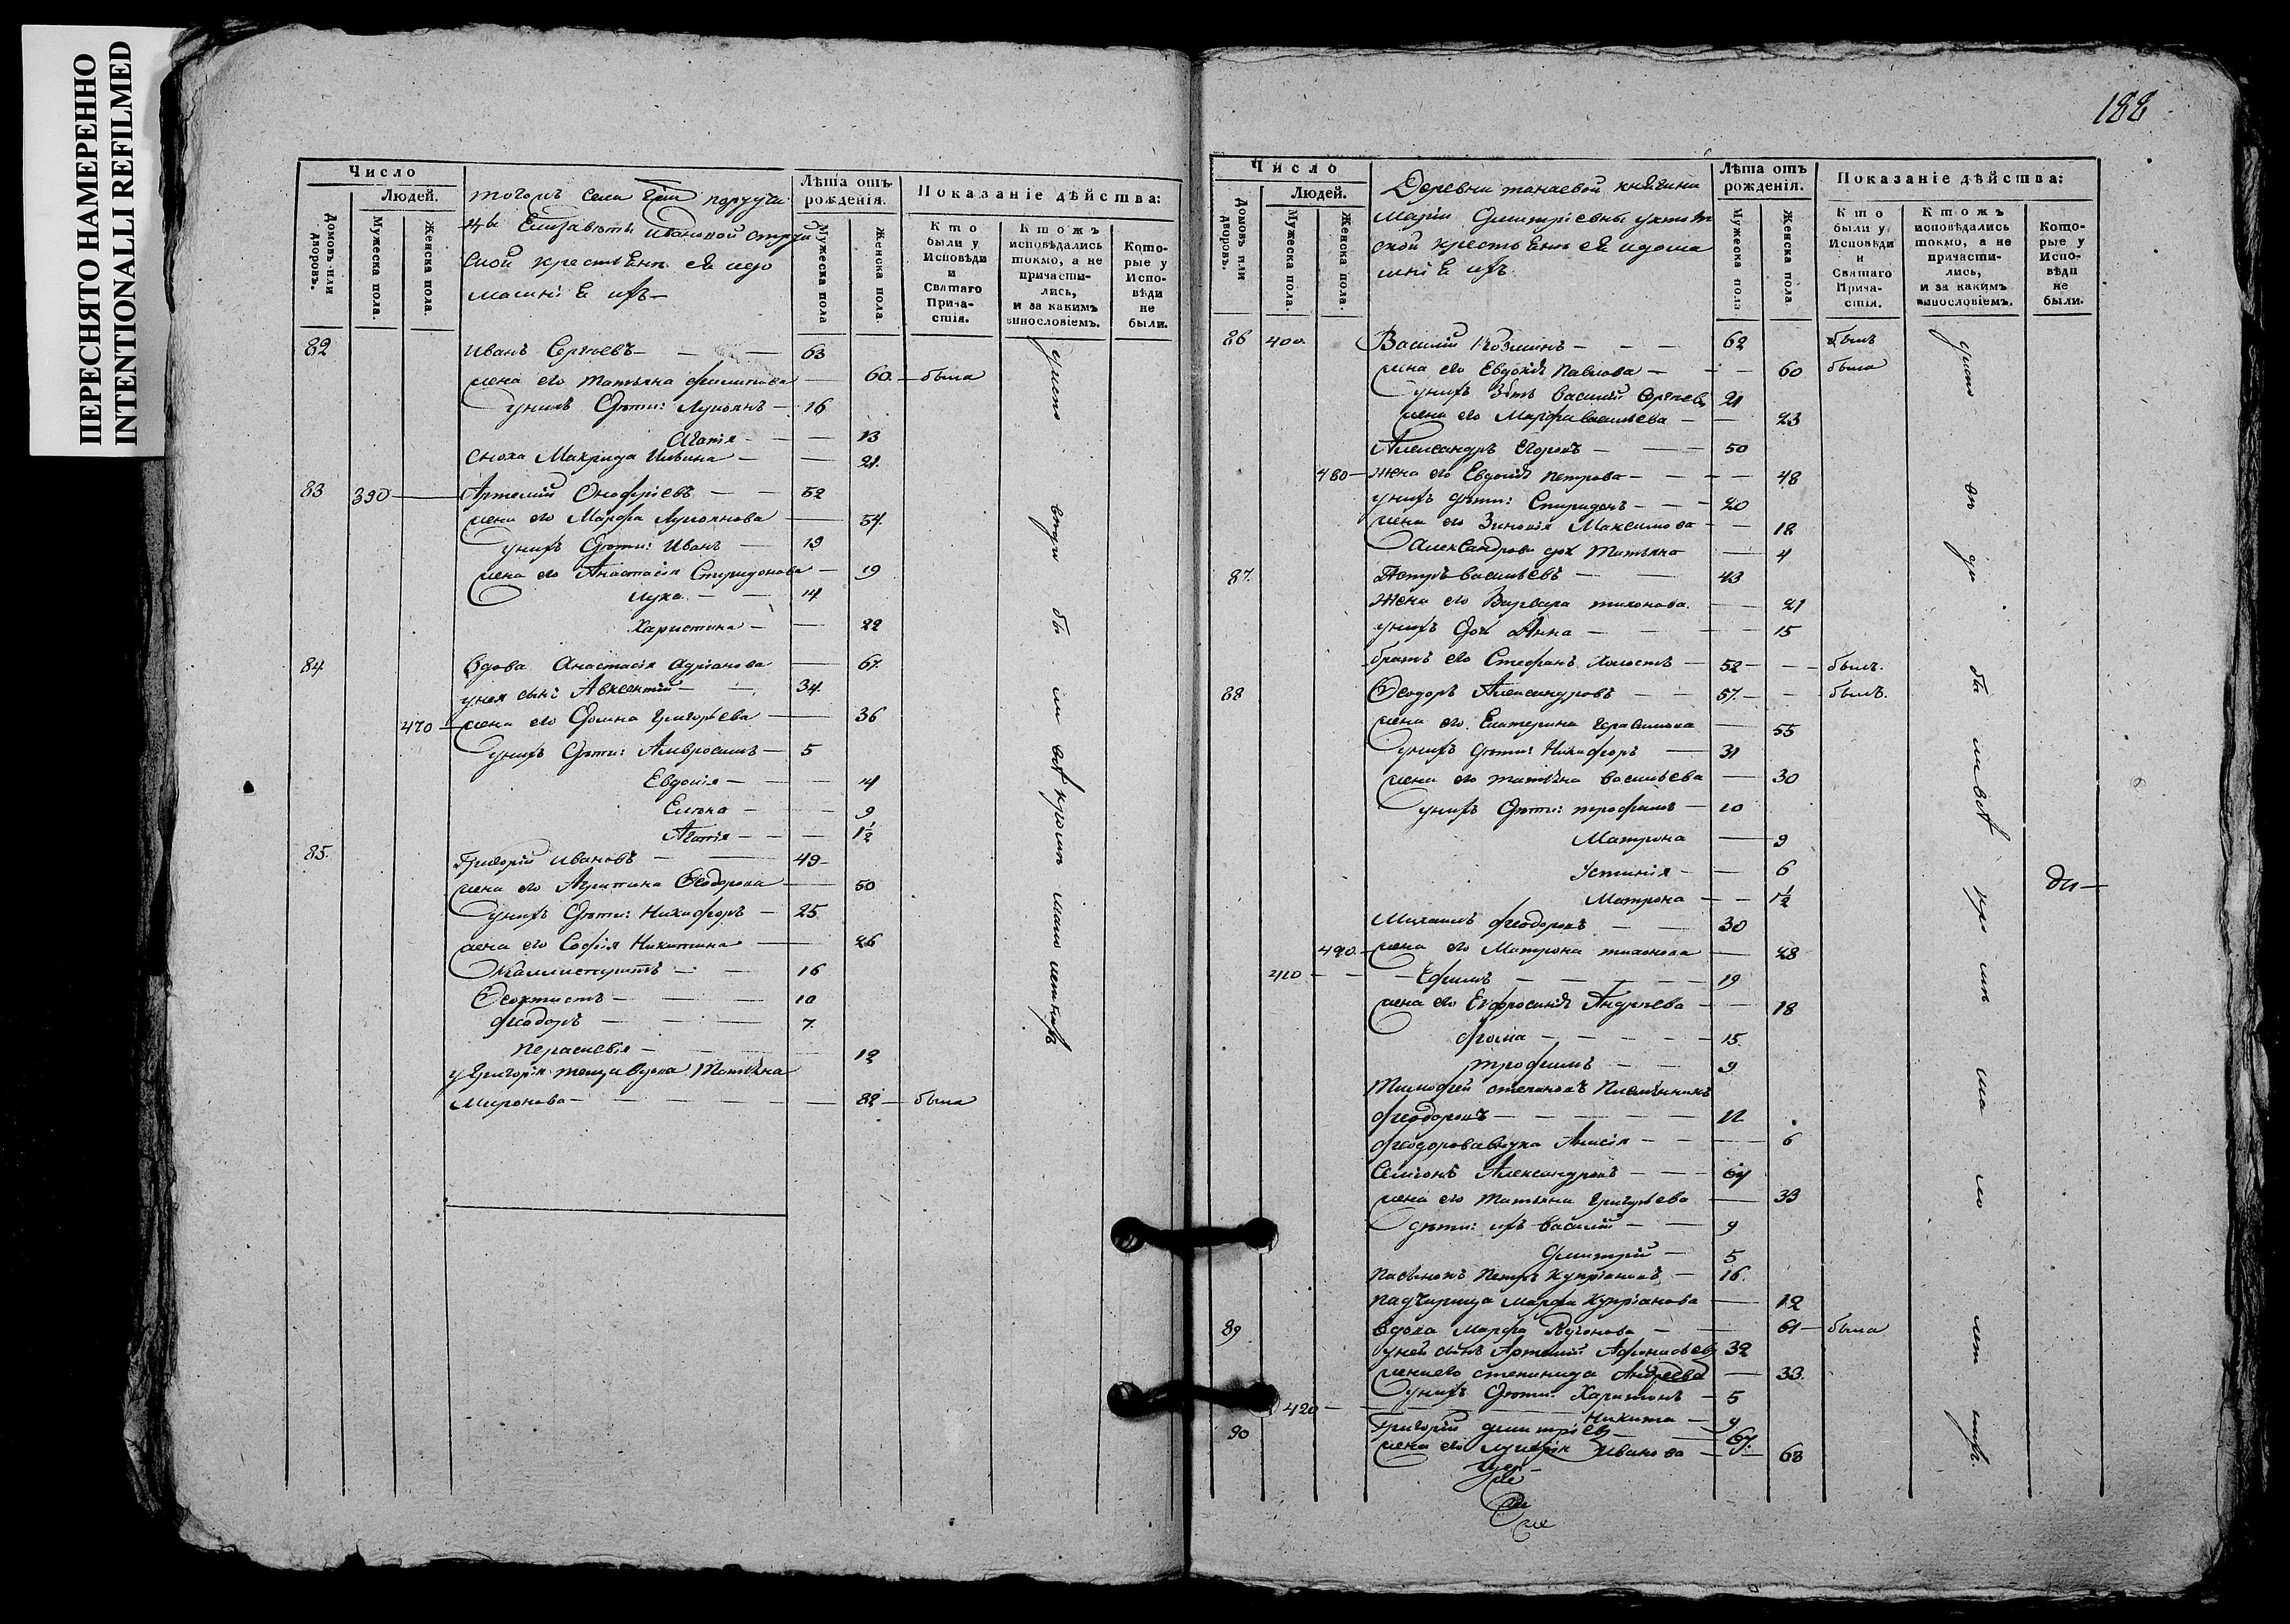 ПЕРЕСНЯТО НАМЕРЕННО
INTENTIONALLI REFILMED
188
Число
Людей.
Домовъ или дворовъ.
Мужеска пола.
Женска пола.
тогожъ села поручи
цы Елизаветы Ивановой
ской крестьяне ея и до
машнiе ихъ
Лѣта отъ рожденiя.
Мужеска пола
Женска пола.
Показанiе дѣйства:
Кто были у Исповѣди и Святаго Прича- стiя.
Ктожъ исповѣдались токмо, а не причасти- лись, и за какимъ виносло­вiемъ.
Кото- рые у Испо- вѣди не были.
82 Иванъ Сергѣевъ 63
жена его Татьяна Филипова 60 была
у нихъ дѣти: Лукьянъ 16
Агапiя 13
сноха Макрида Ильина 21
83 390 Артемiй Онофрiевъ 52
жена его Марфа Лукоянова 54
у нихъ дѣти: Иванъ 19
жена его Анастасiя Спиридонова 19
Лука 14
Харистина 22
84 Вдова Анастасiя Адрiанова 67
у нея сынъ Авксентiй 34
470 жена его Домна Григорьева 36
у нихъ дѣти: Амвросимъ 5
Евдокiя 14
Елена 9
Агапiя 1½
85 Григорiй Ивановъ 49
жена его Агрипина Ѳеодорова 50
у нихъ дѣти: Никифоръ 25
жена его Софiя Никитина 26
Каллистратъ 16
Ѳеоктистъ 10
Феодоръ 7
Параскевiя 12
у Григорiя теща вдова Татьяна
Миронова 82 была
Число
Людей.
Домовъ или дворовъ.
Мужеска пола.
Женска пола.
Деревни танаевой княгини
Марiи Дмитрiевны ухтом
ской крестьяне ея и дома
шнiе ихъ
Лѣта отъ рожденiя.
Мужеска пола
Женска пола.
Показанiе дѣйства:
Кто были у Исповѣди и Святаго Прича- стiя.
Ктожъ исповѣдались токмо, а не причасти- лись, и за какимъ винословiемъ.
Кото- рые у Испо- вѣди не были.
86 400 Василiй Козминъ 62 былъ
жена его Евдокiя Павлова 60 была
у нихъ зять Василiй Сергѣевъ 21
жена его Марфа Васильева 23
Александръ Егоровъ 50
480 жена его Евдокiя Петрова 48
у нихъ дѣти: Спиридонъ 20
жена его Зиновiя Максимова 18
Александрова дочь Татьяна 4
87 Петръ Васильевъ 43
жена его Варвара Тихонова 21
у нихъ дочь Анна 15
братъ его Стефанъ холостъ 52 былъ
88 Ѳеодоръ Александровъ 57 былъ
жена его Екатерина Герасимова 55
у нихъ дѣти: Никифоръ 31
жена его Татьяна Васильева 30
у нихъ дѣти: Трофимъ 10
Матрона 9
Устинiя 6
Матрона 1½
Михаилъ Феодоровъ 30
490 жена его Матрона Тихонова 28
410 Ефимъ 19
жена его Евфросинiя Андреева 18
Фома 15
Трофимъ 9
Тимофей Степановъ племянникъ
Феодоровъ 12
Феодорова внука Анисiя 6
Семіонъ Александровъ
жена его Татьяна Григорьева 33
дѣти: ихъ Василiй 9
Дмитрiй 5
Пасынокъ Петръ Купрiановъ 16
падчерица Марфа Купрiанова 12
89 вдова Марфа 61 была
у ней сынъ Артемiй Афонасьевъ 32
жена его Степанида Андреева 33
у нихъ дѣти: Харитонъ 5
420 Никита
90 Григорiй Дмитрiевъ 67
жена его Лукерья Иванова 68